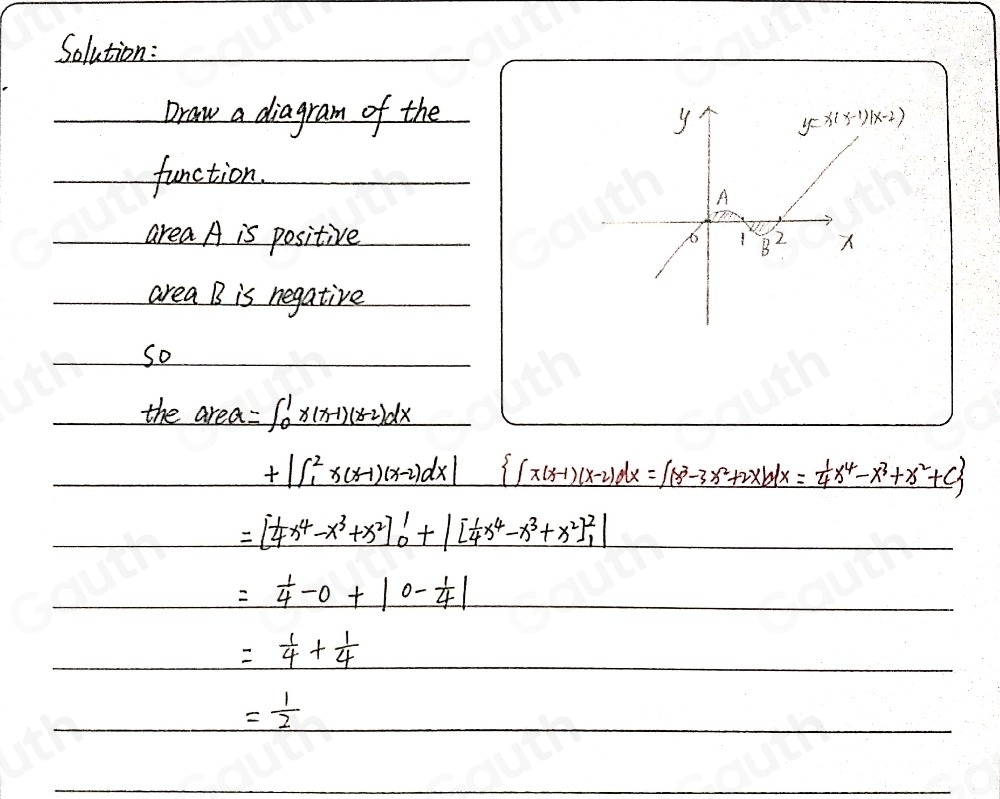 Solution:
Draw a diagram of the
function.
area A is positive
area B is negative
so
the area = ∫₀¹ x(x-1)(x-2)dx
+ |∫₁² x(x-1)(x-2)dx| {∫x(x-1)(x-2)dx = ∫(x³-3x²+2x)dx = ¼x⁴-x³+x²+C}
= [¼x⁴-x³+x²]₀¹ + |[¼x⁴-x³+x²]₁²|
= ¼-0 + |0-¼|
= ¼+¼
= ½
y
y=x(x-1)(x-2)
A
0 1 B 2 x
Gauth